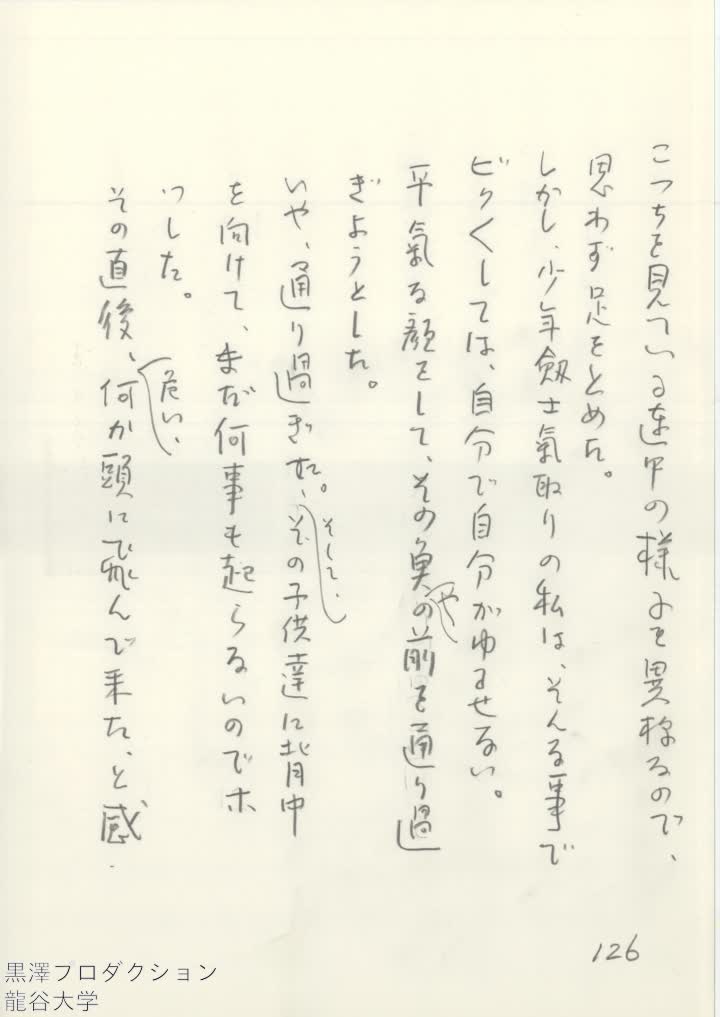 こつちを見ている連中の様子も異様なので、
思わず足をとめた。
しかし、少年劔士氣取りの私は、そんな事で
ビクくしては、自分で自分がゆるせない。
平氣な顔をして、その魚やの前を通り過
ぎようとした。
いや、通り過ぎた。そして、その子供達に背中
を向けて、まだ何事も起らないのでホ
ッした。
その直後、危い、何か頭に飛んで来た、と感
126
黒澤プロダクション
龍谷大学